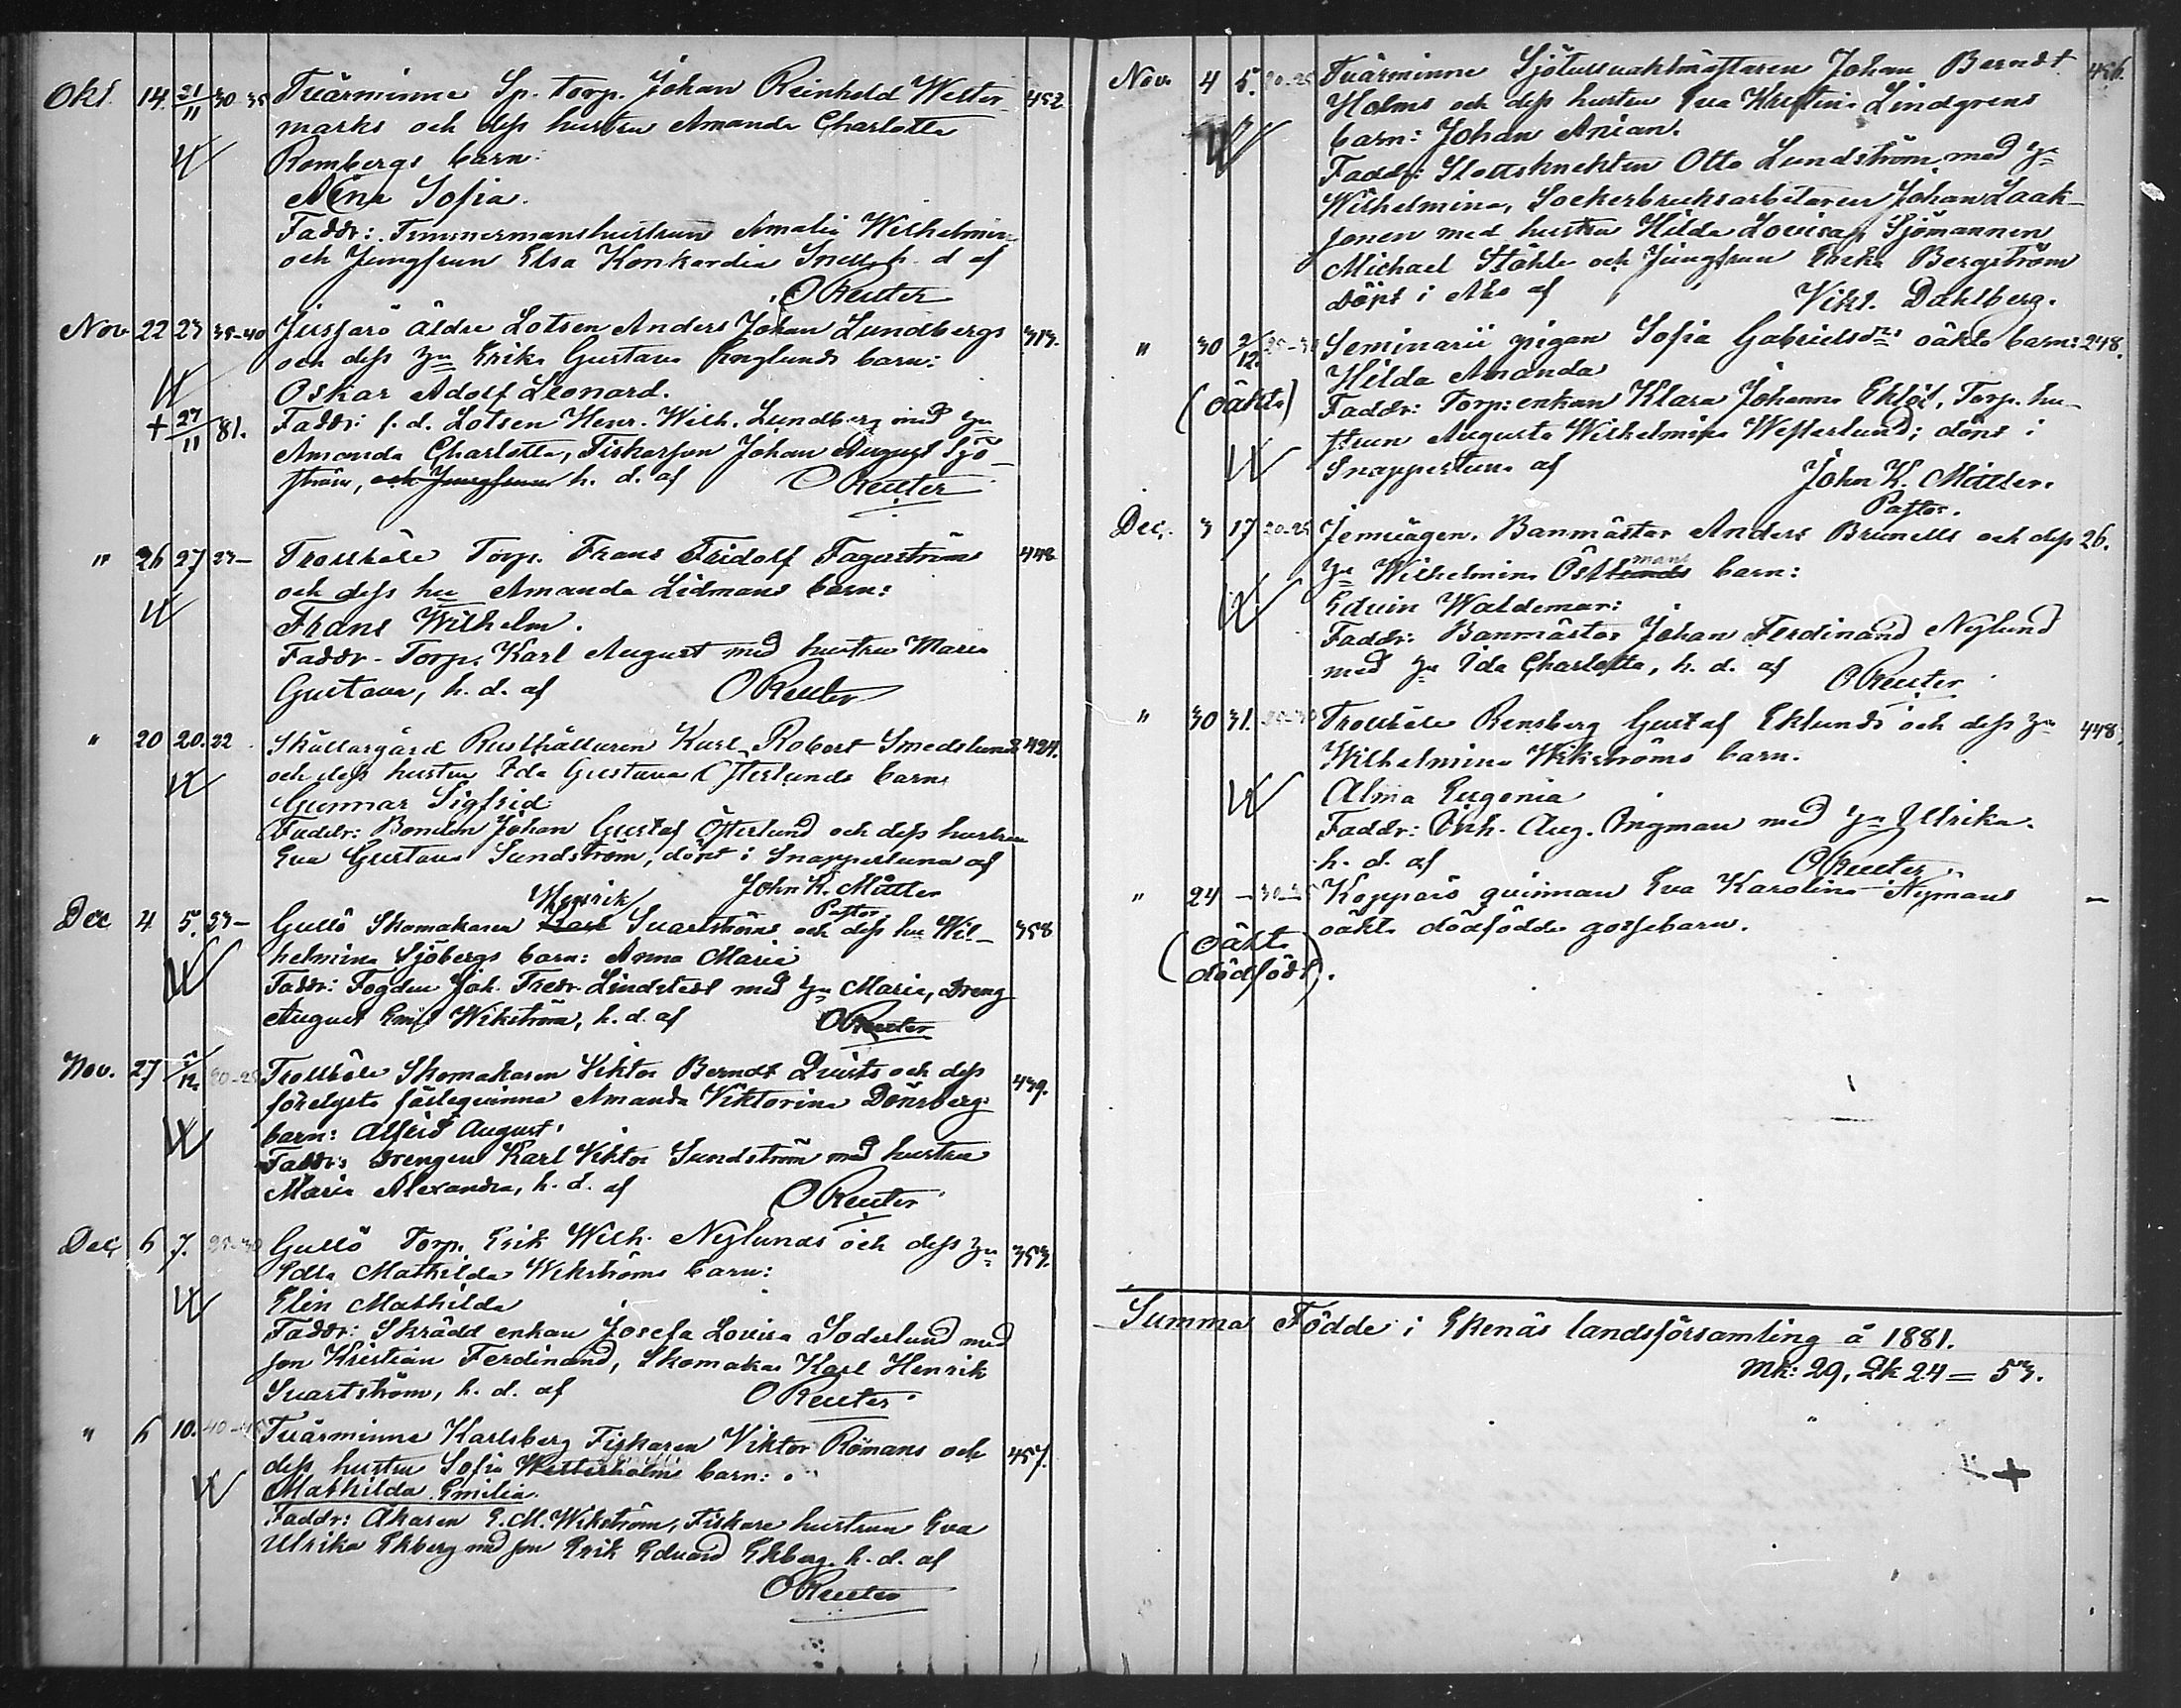 Okt. 14. 21/11 30-35 Tvärminne Sp. torp. Johan Reinhold Wester- 452
marks och dess hustru Amanda Charlotta
Rombergs barn:
Alina Sofia.
Faddr: Timmermanshustrun Amalia Wilhelmina
och Jungfrun Elsa Konkordia Snell, h. d. af
O Reuter
Nov. 22 23 35-40 Jussarö äldre Lotsen Anders Johan Lundbergs 313.
och dess hu Erika Gustava Englunds barn:
Oskar Adolf Leonard.
+ 27/11 81. Faddr: f. d. Lotsen Henr. Wilh. Lundberg med hu
Amanda Charlotta, Fiskarson Johan August Sjö-
ström, och Jungfrun h. d. af O Reuter
" 26 27 23- Trollböle Torp. Frans Fridolf Fagerströms 448
och dess hu Amanda Lidmans barn:
Frans Wilhelm.
Faddr- Torp. Karl August med hustru Maria
Gustava, h. d. af O Reuter
" 20 20. 22 Skåldargård Rusthållaren Karl Robert Smedslunds 424.
och dess hustru Ida Gustava Österlunds barn
Gunnar Sigfrid
Faddr: Bonden Johan Gustaf Österlund och dess hustru
Eva Gustava Sundström, döpt i Snappertuna af
John K. Müller
Pastor.
Henrik
Dec. 4 5. 23- Gullö Skomakaren Karl Svartströms och dess hu Wil- 358
helmina Sjöbergs barn: Anna Maria
Faddr: Fogden Joh. Fredr. Lindstedt med hu Maria, dreng
August Emil Wikström, h. d. af O Reuter
Nov. 27 /12 20-25 Trollböle Skomakaren Viktor Berndt Qvists och dess 439.
förelysta fästeqvinna Amanda Viktorina Dönsbergs
barn: Alfrid August.
Faddr: drengen Karl Viktor Sundström med hustru
Maria Alexandra, h. d. af O Reuter
Dec. 6 7. 25-30 Gullö Torp. Erik Wilh. Nylunds och dess hu 353.
Edla Mathilda Wikströms barn:
Elin Mathilda
Faddr: Skrädd enkan Josefa Lovisa Soderlund med
son Kristian Ferdinand, Skomakar Karl Henrik
Svartström, h. d. af O Reuter
" 6 10. 40-45 Tvärminne Karlsberg Fiskaren Viktor Römans och 457.
dess hustru Sofia Westerholms barn:
Mathilda Emilia.
Faddr: Åkaren E. M. Wikström, Fiskare hustrun Eva
Ulrika Ekberg med son Erik Edvard Ekberg. h. d. af
O Reuter
Nov. 4 5. 20-25 Tvärminne Sjötullvaktmästaren Johan Berndt 456.
Holms och dess hustru Eva Kristina Lindgrens
barn: Johan Anian.
Faddr: Slottsknekten Otto Lundström med hu
Wilhelmina, Sockerbruksarbetaren Johan Laak-
sonen med hustru Hilda Lovisa, Sjömannen
Michael Ståhle och Jungfrun Ericka Bergström
döpt i Abo af Vikt. Dahlberg.
" 30 2/12. Seminarii pigan Sofia Gabrielsdrs oäkta barn: 248.
Hilda Amanda
(oäkta) Faddr: Torp: enkan Klara Johanna Eklöf, Torp. hu-
strun Augusta Wilhelmina Westerlund; döpt i
Snappertuna af John K. Müller.
Pastor.
Dec. 3 17 20-25 Jernvägen. Banmästar Anders Brunells och dess 26.
hu Wilhelmina Östlunds mans barn:
Edvin Waldemar:
Faddr: Banmästar Johan Ferdinand Nylund
med hu Ida Charlotta, h. d. af O Reuter
" 30 31. Trollböle Rensberg Gustaf Eklunds och dess hu 448.
Wilhelmina Wikströms barn.
Alma Eugenia
Faddr: Aug. Ongman med hu Ulrika.
h. d. af O Reuter
" 24 - 30-35 Koppars qvinnan Eva Karolina Nymans -
oäkta dödfödda gossebarn.
(oäkta
dödfödt).
Summa Födde i Ekenäs landsförsamling å 1881.
Mk: 29, Qk 24 = 53.